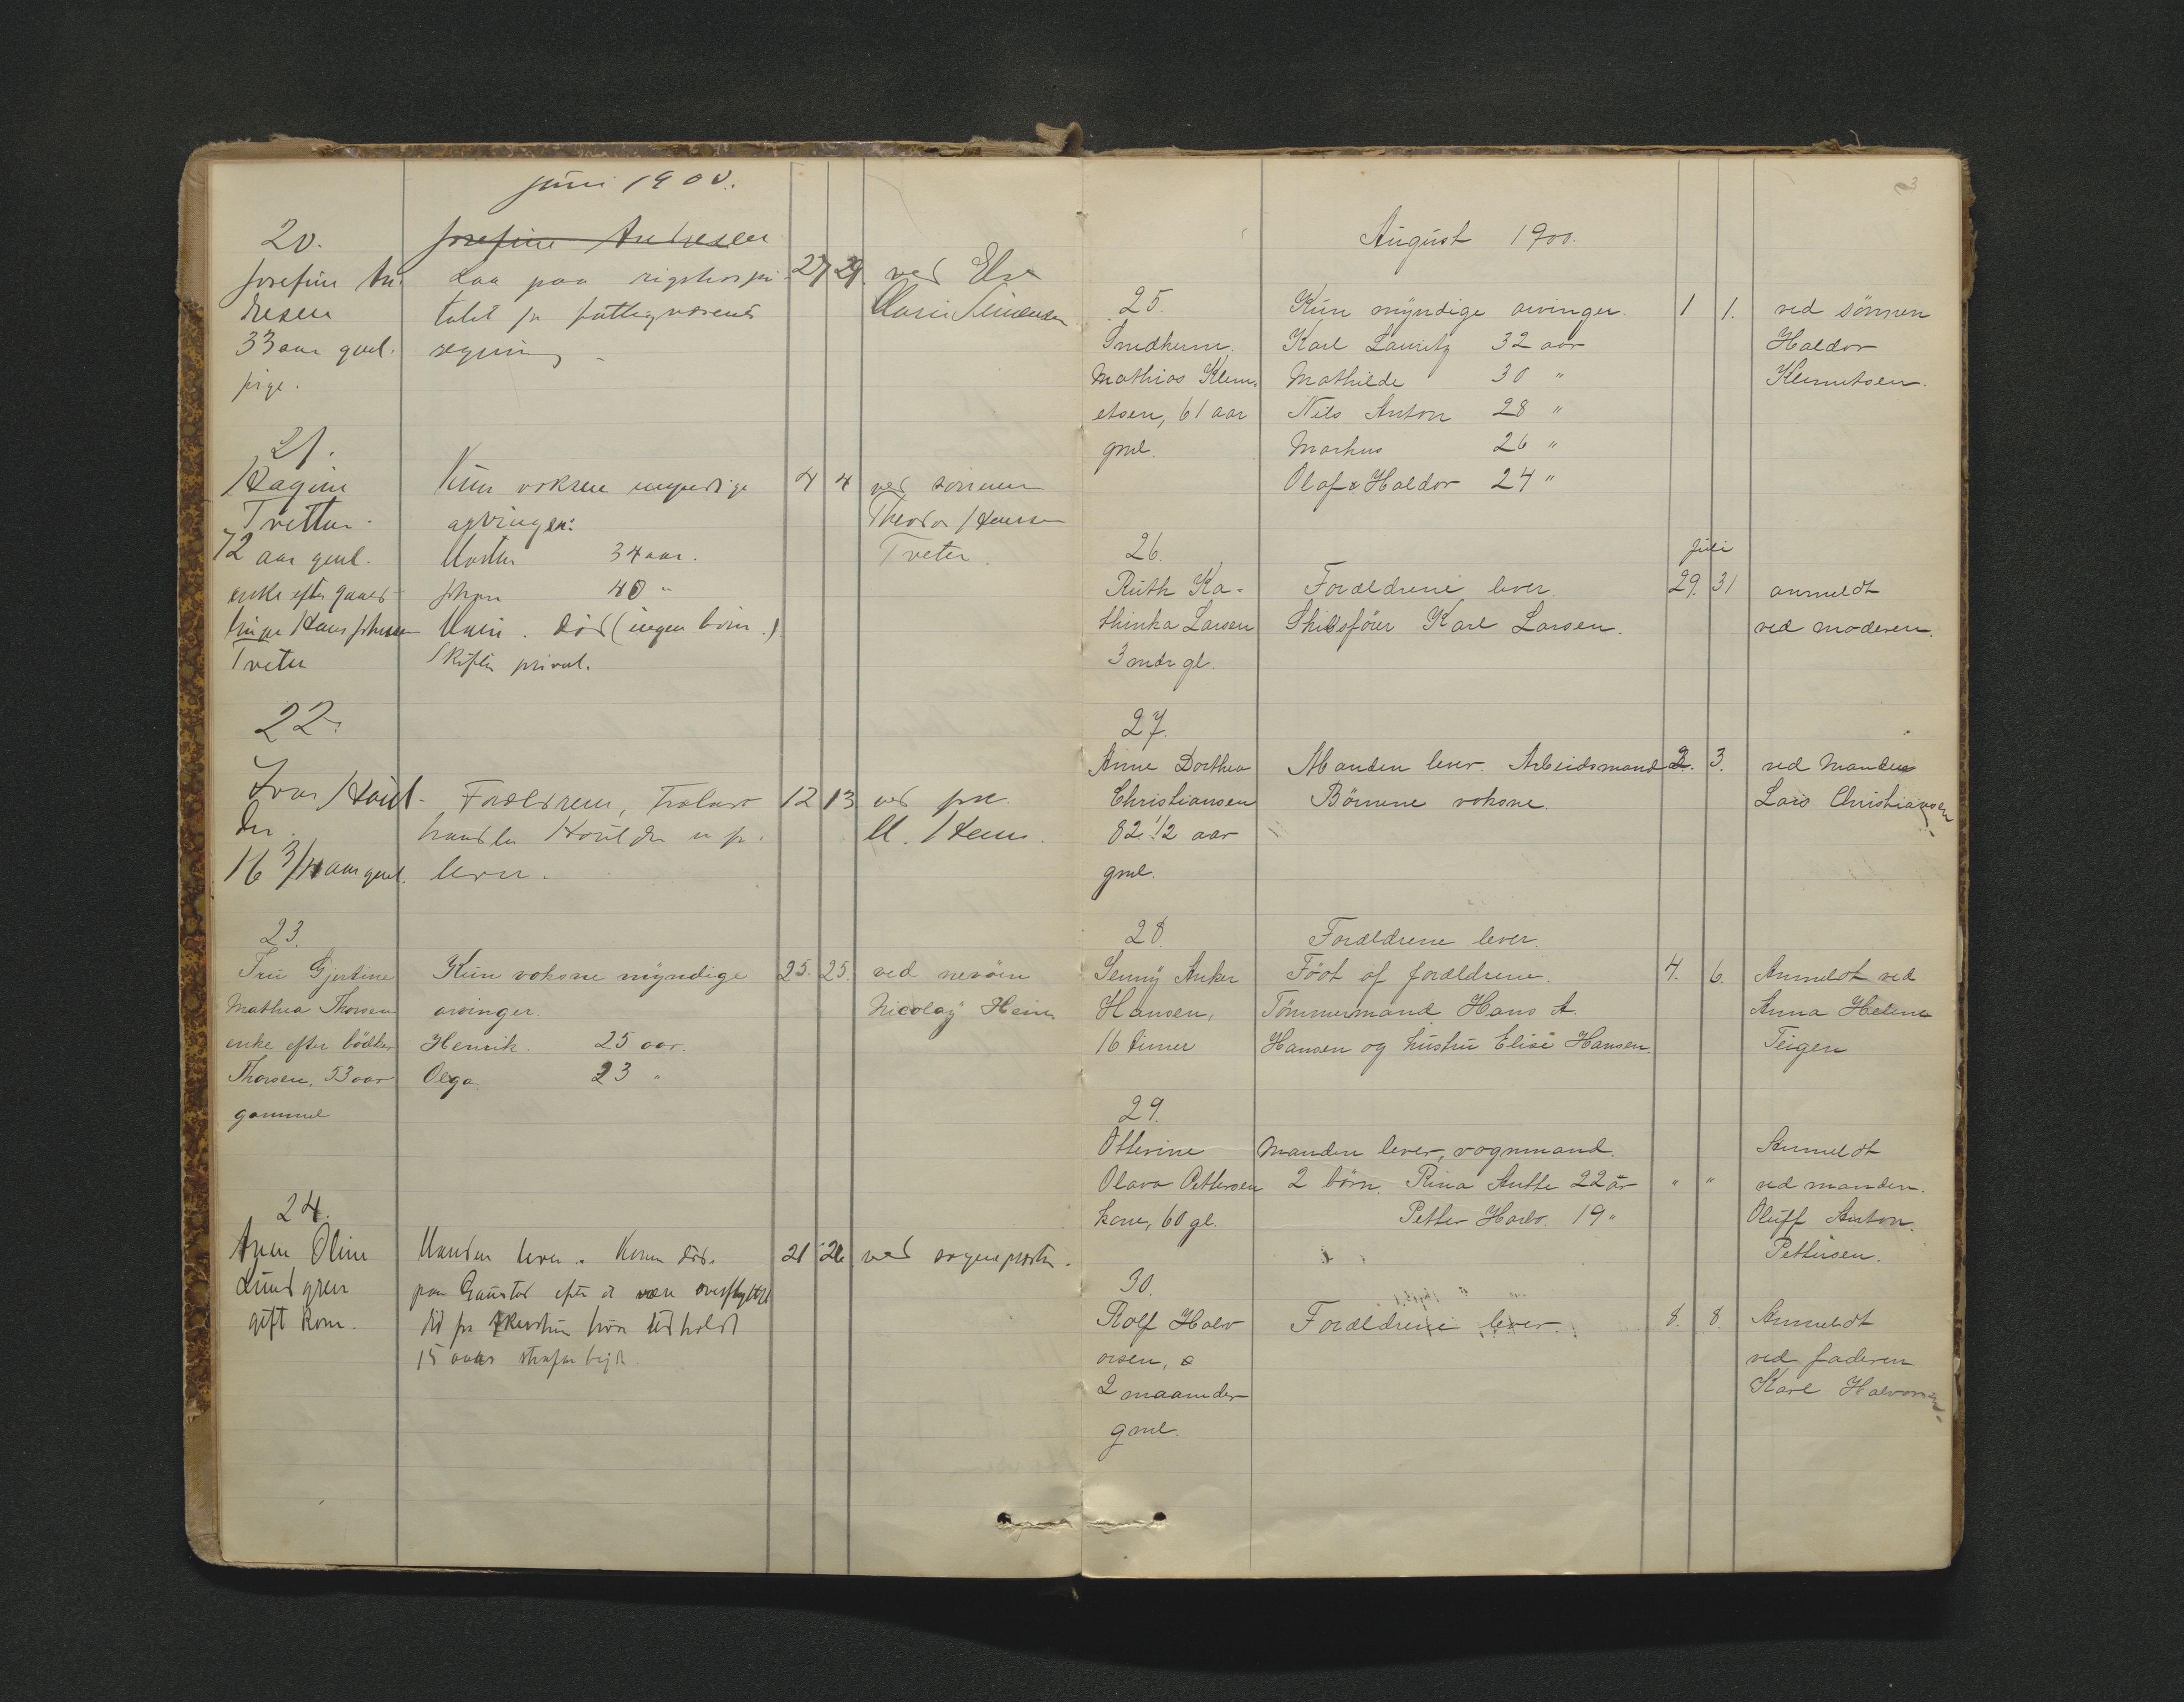 juni 1900.
20.
Josefine Andresen
Josefine An-
dresen
33 aar gml.
pige.
Laa paa rigshospi-
talet for fattigvæsenets
regning
27 29 ved Elen
Marie Simensen
21.
Hagine
Tvetter
72 aar gml.
enke efter gaard-
bruger Hans Johnsen
Tveter
Kun voksne myndige
arvinger:
Morten 34 aar.
Johan 40 "
Maren. död (ingen börn.)
Skifter privat.
4 4 ved sönnen
Theodor Hansen
Tveter
22.
Ivar Hául-
der.
16 3/4 aar gml.
Forældrene, Trælast
handler Houlder u fr.
lever.
12 13 ved frk.
M. Hem.
23.
Fru Gjertine
Mathea Thorsen
enke efter bödker
Thorsen, 53 aar
gammel
Kun voksne myndige
arvinger.
Henrik. 25 aar.
Olga 23 "
25. 25. ved nevöen
Nicolay Hem
24.
Anne Oline
Lundgren
gift kone.
Manden lever. Konen död.
paa Gaustad efter at være overflyttet
did fra
15 aars
21 26 ved sognepresten.
3
August 1900.
25.
Smedkunn.
Mathias Klem-
etsen, 61 aar
gml.
Kun myndige arvinger.
Karl Lauritz 32 aar
Mathilde 30 "
Nils Anton 28 "
Markus 26 "
Olaf & Haldor 24 "
1 1. ved sönnen
Haldor
Klemetsen.
26.
Ruth Ka-
thinka Larsen
3 mdr gl.
Forældrene lever.
Skibsförer Karl Larsen.
juli
29. 31 anmeldt
ved moderen.
27.
Anne Dorthea
Christiansen
82 1/2 aar
gml.
Manden lever. Arbeidsmand
Börnene voksne.
2. 3. ved Manden
Lars Christiansen
28.
Jenny Anker
Hansen,
16 timer
Forældrene lever.
Födt af forældrene.
Tömmermand Hans A.
Hansen og hustru Elise Hansen.
4. 6. Anmeldt ved
Anna Helene
Teigen
29.
Otterine
Olava Pettersen
kone, 60 gl.
Manden lever, vognmand.
2 börn. Rina Anette 22 år
Petter Harlo. 19 "
" " Anmeldt
ved manden.
Oluff Anton.
Pettersen.
30.
Rolf Halv
orsen,
2 maaneder
gml.
Forældrene lever.
8. 8 Anmeldt
ved faderen
Karl Halvorsen